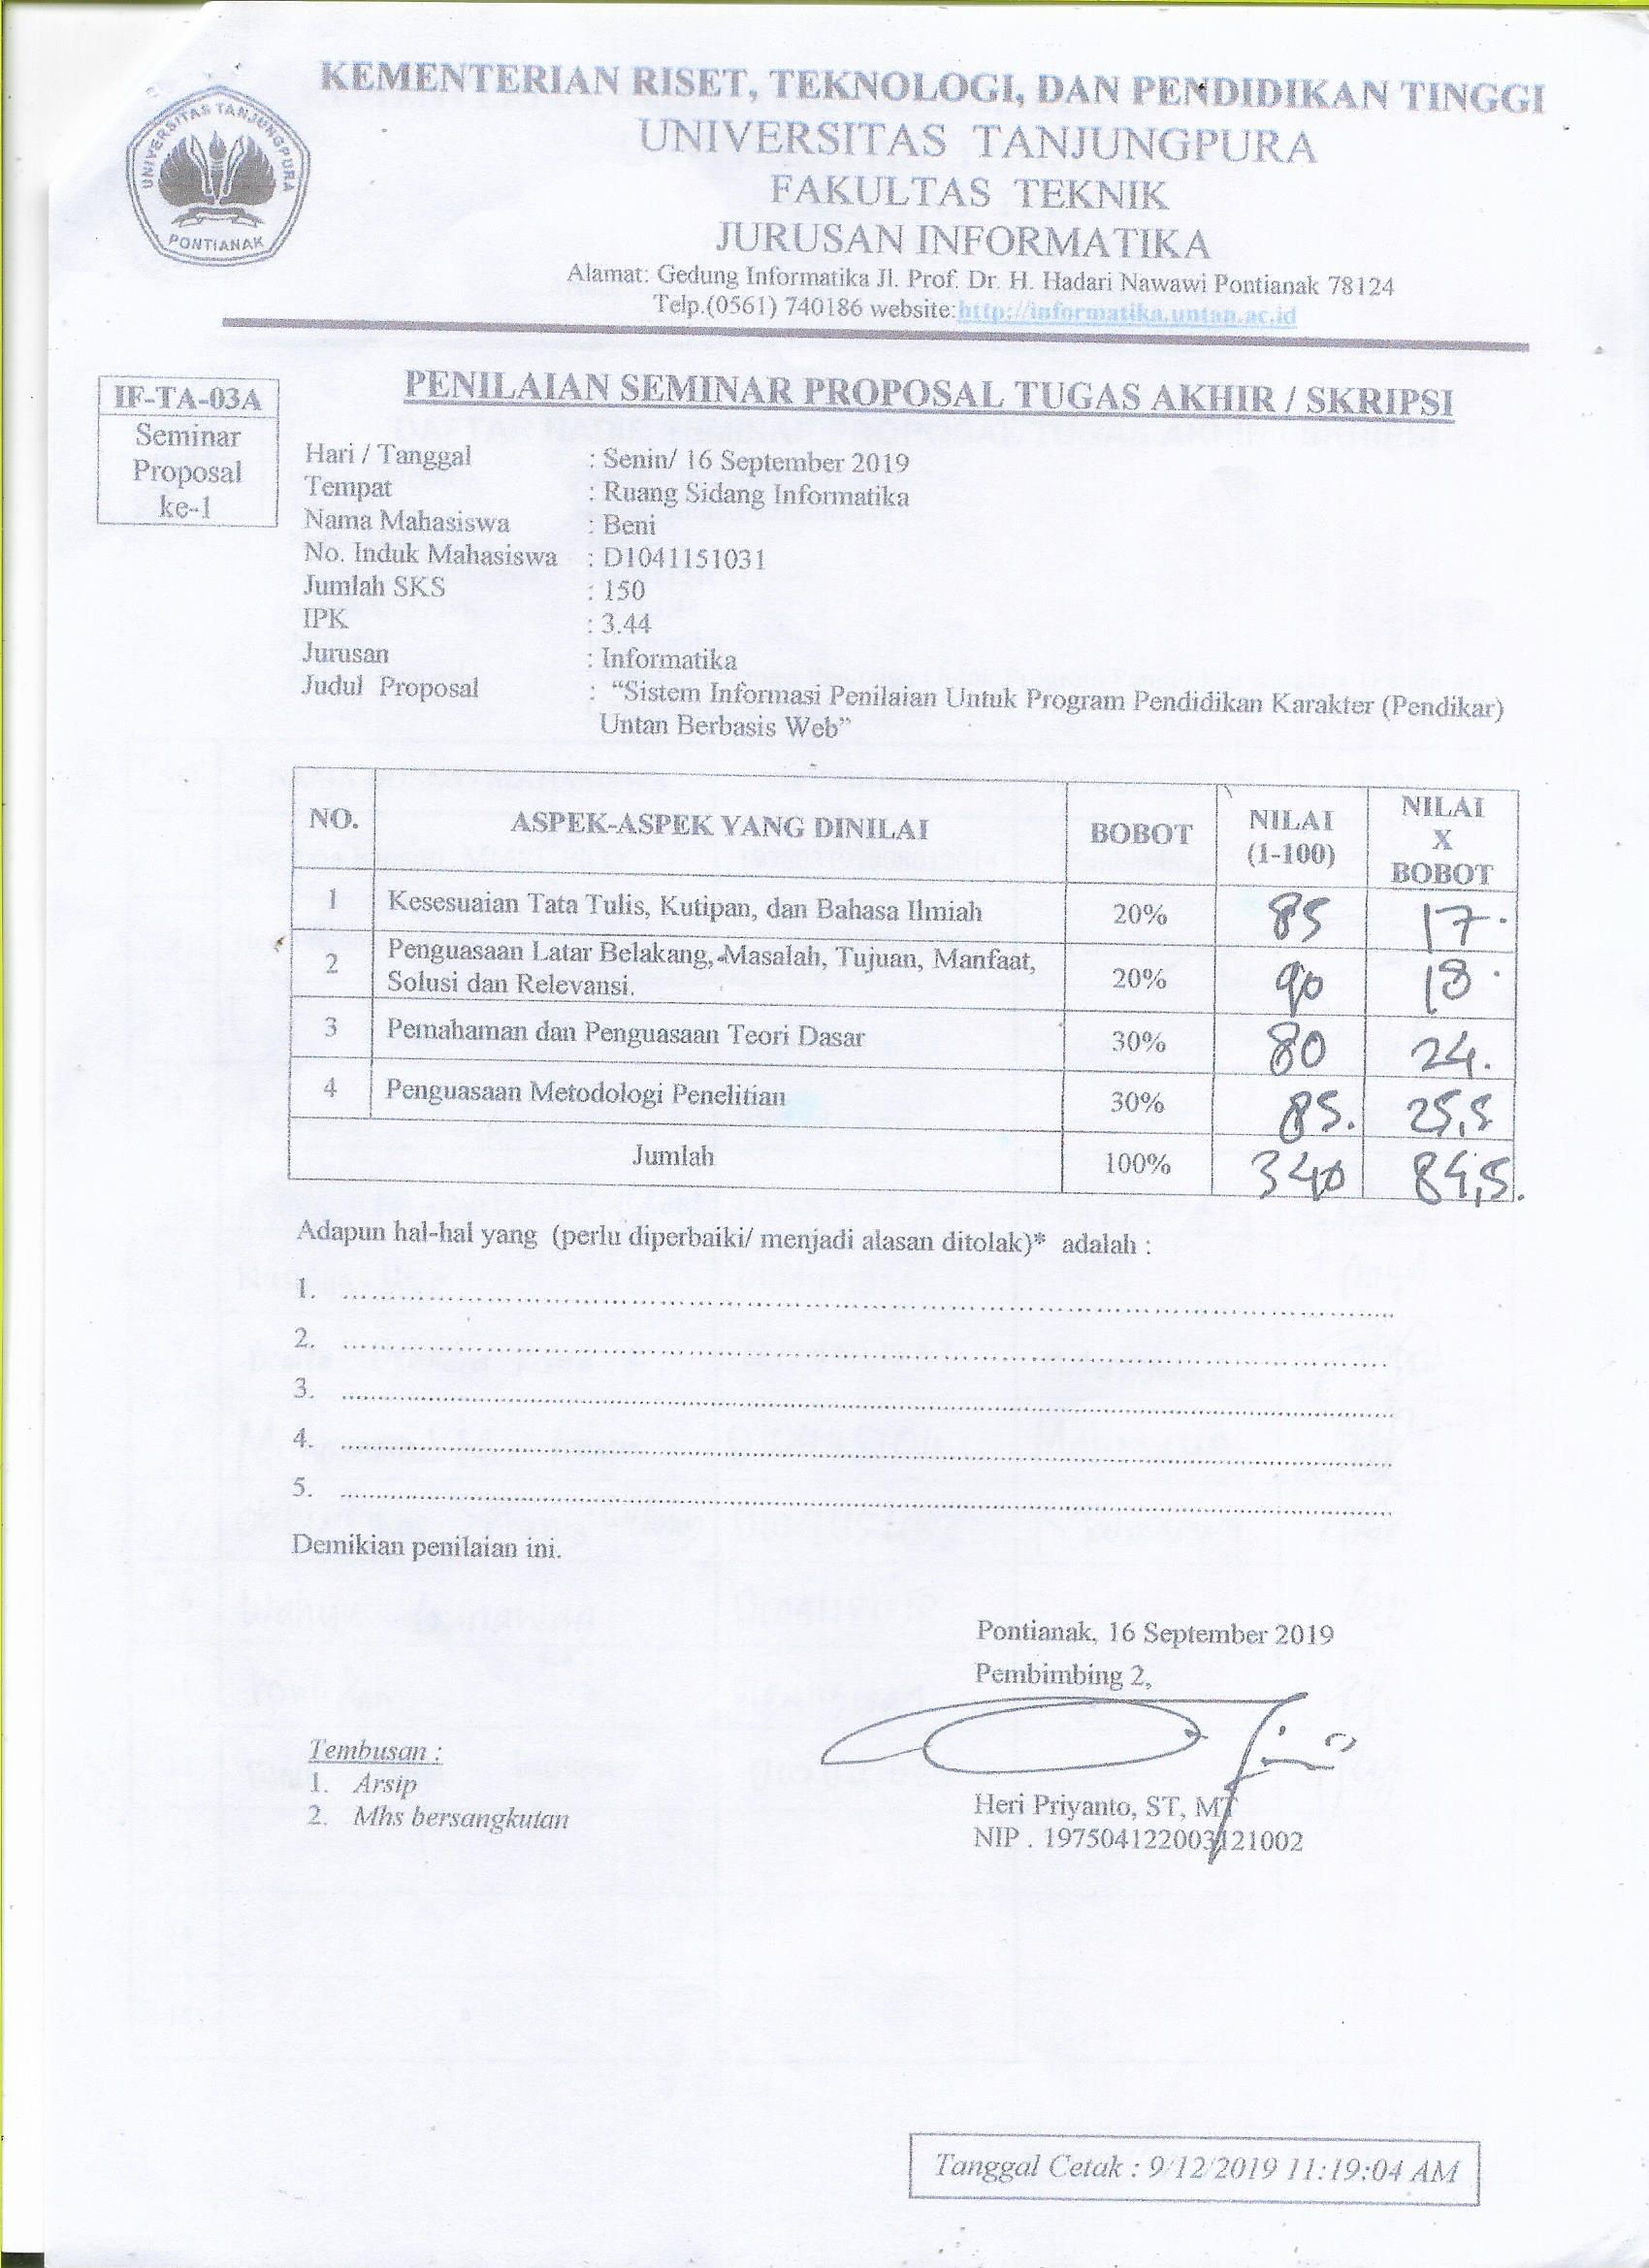 KEMENTERIAN RISET, TEKNOLOGI, DAN PENDIDIKAN TINGGI
UNIVERSITAS TANJUNGPURA
FAKULTAS TEKNIK
JURUSAN INFORMATIKA
Alamat: Gedung Informatika Jl. Prof. Dr. H. Hadari Nawawi Pontianak 78124
Telp.(0561) 740186 website:http://informatika.untan.ac.id
UNIVERSITAS TANJUNGPURA
PONTIANAK
IF-TA-03A
Seminar
Proposal
ke-1
PENILAIAN SEMINAR PROPOSAL TUGAS AKHIR / SKRIPSI
Hari / Tanggal : Senin/ 16 September 2019
Tempat : Ruang Sidang Informatika
Nama Mahasiswa : Beni
No. Induk Mahasiswa : D1041151031
Jumlah SKS : 150
IPK : 3.44
Jurusan : Informatika
Judul Proposal : “Sistem Informasi Penilaian Untuk Program Pendidikan Karakter (Pendikar)
Untan Berbasis Web”
NO. ASPEK-ASPEK YANG DINILAI BOBOT NILAI (1-100) NILAI X BOBOT
1 Kesesuaian Tata Tulis, Kutipan, dan Bahasa Ilmiah 20% 85 17.
2 Penguasaan Latar Belakang, Masalah, Tujuan, Manfaat,
Solusi dan Relevansi. 20% 90 18.
3 Pemahaman dan Penguasaan Teori Dasar 30% 80 24.
4 Penguasaan Metodologi Penelitian 30% 85. 25,5.
Jumlah 100% 340 84,5.
Adapun hal-hal yang (perlu diperbaiki/ menjadi alasan ditolak)* adalah :
1.
2.
3.
4.
5.
Demikian penilaian ini.
Pontianak, 16 September 2019
Pembimbing 2,
Heri Priyanto, ST, MT
NIP . 197504122003121002
Tembusan :
1. Arsip
2. Mhs bersangkutan
Tanggal Cetak : 9/12/2019 11:19:04 AM